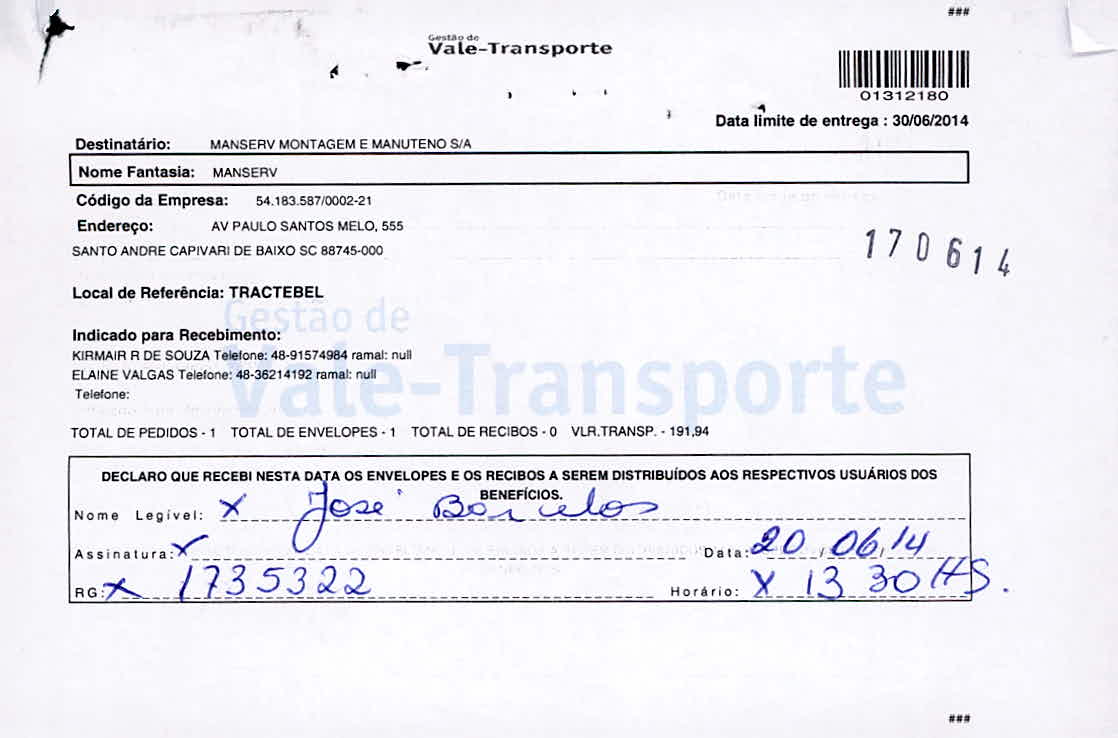 ###
Gestão de
Vale-Transporte
01312180
Data limite de entrega : 30/06/2014
Destinatário: MANSERV MONTAGEM E MANUTENO S/A
Nome Fantasia: MANSERV
Código da Empresa: 54.183.587/0002-21
Endereço: AV PAULO SANTOS MELO, 555
SANTO ANDRE CAPIVARI DE BAIXO SC 88745-000
170614
Local de Referência: TRACTEBEL
Gestão de
Indicado para Recebimento:
KIRMAIR R DE SOUZA Telefone: 48-91574984 ramal: null
Vale-Transporte
ELAINE VALGAS Telefone: 48-36214192 ramal: null
Telefone:
TOTAL DE PEDIDOS - 1 TOTAL DE ENVELOPES - 1 TOTAL DE RECIBOS - 0 VLR.TRANSP. - 191,94
DECLARO QUE RECEBI NESTA DATA OS ENVELOPES E OS RECIBOS A SEREM DISTRIBUÍDOS AOS RESPECTIVOS USUÁRIOS DOS
BENEFÍCIOS.
Nome Legível: X José Barcelos
Assinatura: X Data: 20/06/14
RG: X 1735322 Horário: X 13 30 HS.
###